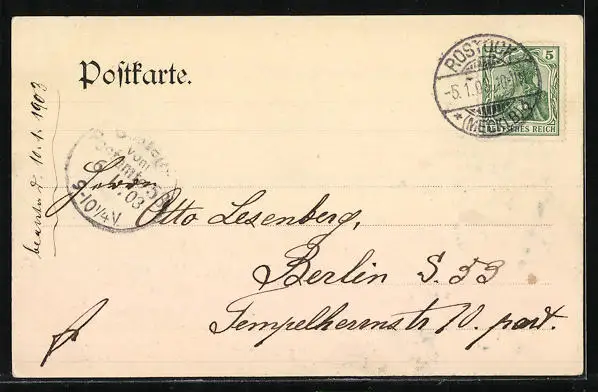 Postkarte.
ROSTOCK
-5.1.03
* (MECKLB) *
5
DEUTSCHES REICH
beantw. d. 10.1.1903
Bestellt
vom
Postamte 53
6.1.03
9-10¼V
Herrn
Otto Lesenberg,
Berlin S. 53
Tempelherrnstr 10. part.